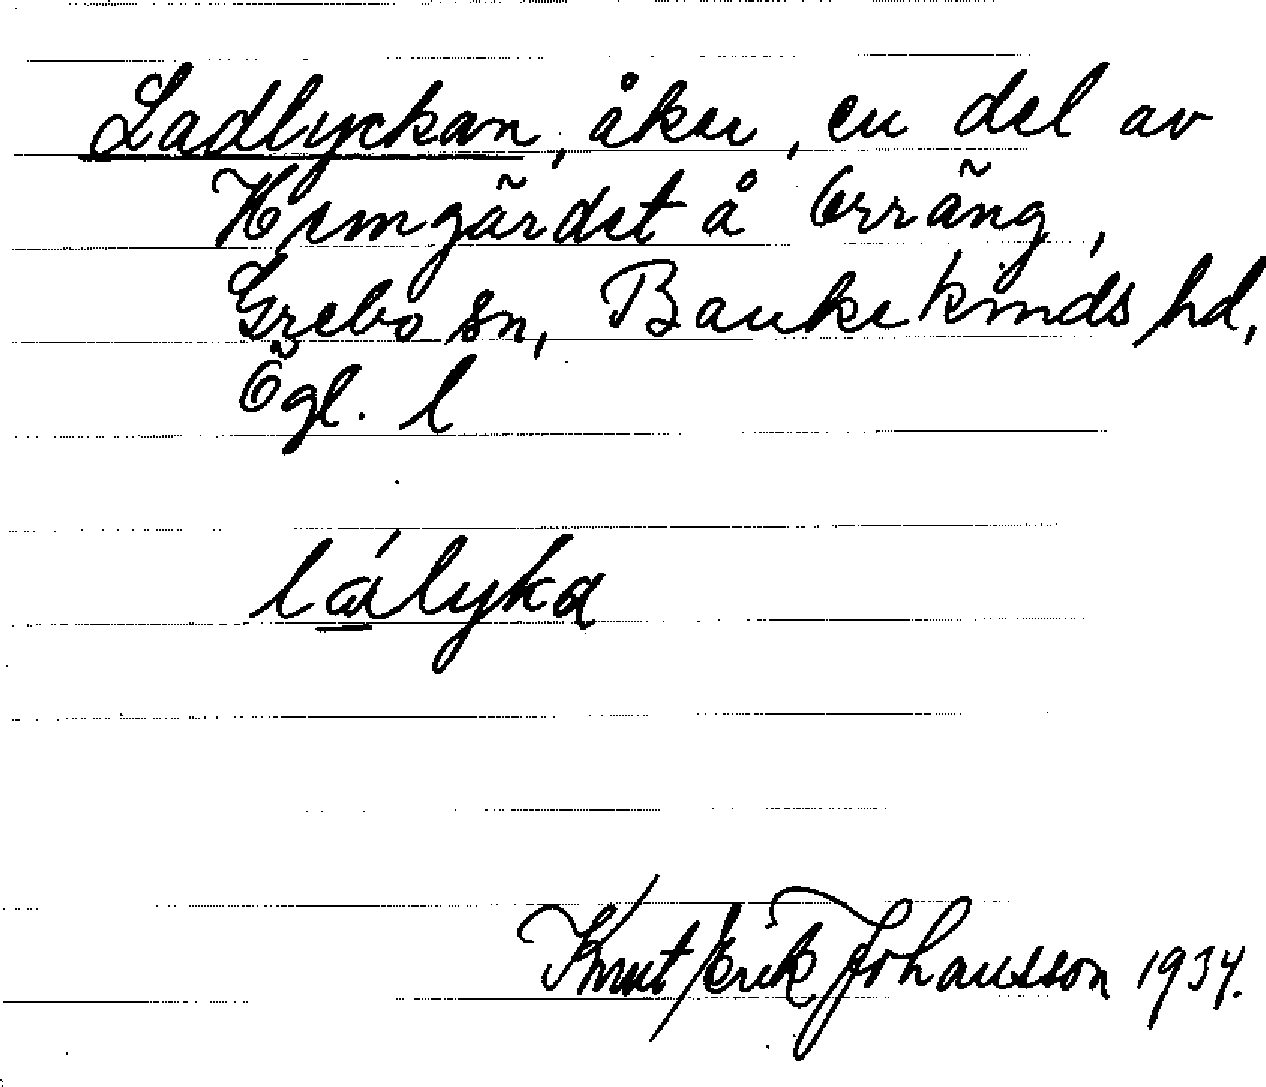 Ladlyckan, åker, en del av
Hemgärdet å Orräng,
Grebo sn, Bankekinds hd,
Ögl. l
lályka
Knut Erik Johansson 1934.